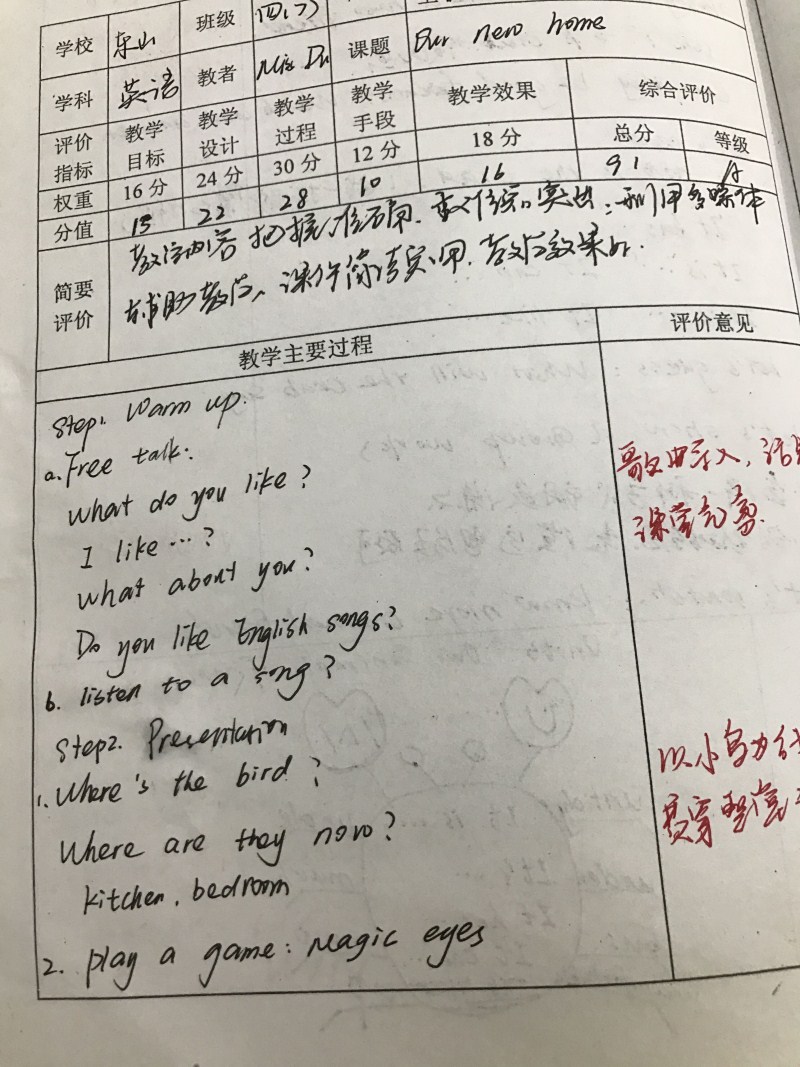 学校 东山 班级 四(7)
学科 英语 教者 Miss Du 课题 Our new home
评价指标 教学目标 教学设计 教学过程 教学手段 教学效果 综合评价
总分 等级
权重 16分 24分 30分 12分 18分
分值 15 22 28 10 16 91 A
简要评价 教学内容把握准确,重难点突出;利用多媒体
辅助教学,课件简洁实用,教学效果好.
教学主要过程 评价意见
Step1. Warm up.
a. Free talk:
What do you like?
I like …?
What about you?
Do you like English songs?
b. listen to a song?
Step2. Presentation
1. Where's the bird?
Where are they now?
kitchen, bedroom
2. play a game: Magic eyes
歌曲导入,活
课堂气氛.
以小鸟为
贯穿整堂